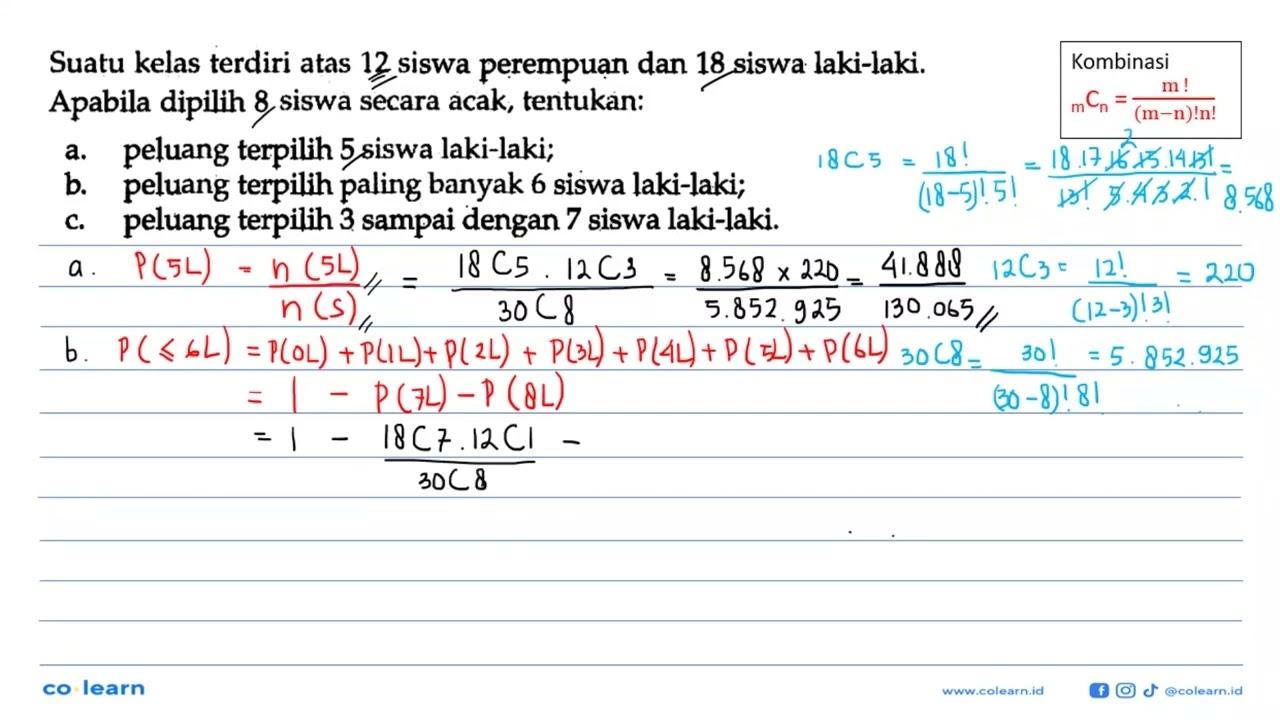 Suatu kelas terdiri atas 12 siswa perempuan dan 18 siswa laki-laki.
Apabila dipilih 8 siswa secara acak, tentukan:
a. peluang terpilih 5 siswa laki-laki;
b. peluang terpilih paling banyak 6 siswa laki-laki;
c. peluang terpilih 3 sampai dengan 7 siswa laki-laki.
Kombinasi
mCn = m! / (m-n)!n!
18C5 = 18! / (18-5)! 5! = 18.17.16.15.14.13! / 13! 5.4.3.2.1 = 8.568
2
a. P(5L) = n(5L) / n(S) = 18C5 . 12C3 / 30C8 = 8.568 x 220 / 5.852.925 = 41.888 / 130.065
12C3 = 12! / (12-3)! 3! = 220
b. P(≤ 6L) = P(0L) + P(1L) + P(2L) + P(3L) + P(4L) + P(5L) + P(6L)
30C8 = 30! / (30-8)! 8! = 5.852.925
= 1 - P(7L) - P(8L)
= 1 - 18C7 . 12C1 / 30C8 -
co learn
www.colearn.id
@colearn.id